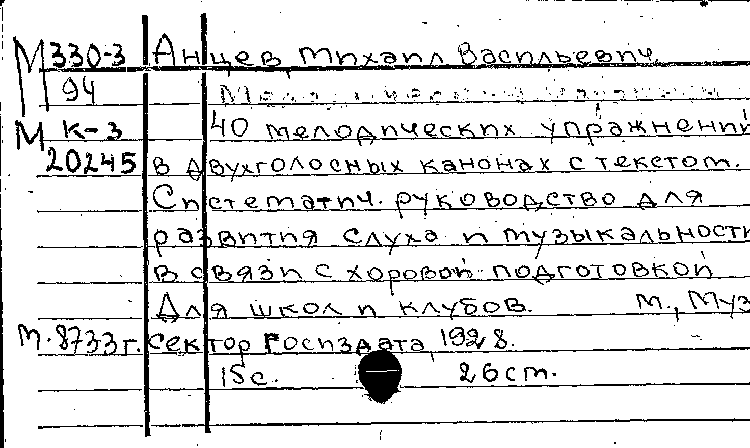 М 330-3 Анцев, Михаил Васильевич
94
М К-3 40 мелодических упражнений
20245 в двухголосных канонах с текстом.
Систематич. руководство для
развития слуха и музыкальности
в связи с хоровой подготовкой
Для школ и клубов. М., Муз
М.8733г. сектор Госиздата, 1928.
15с. 26 cm.